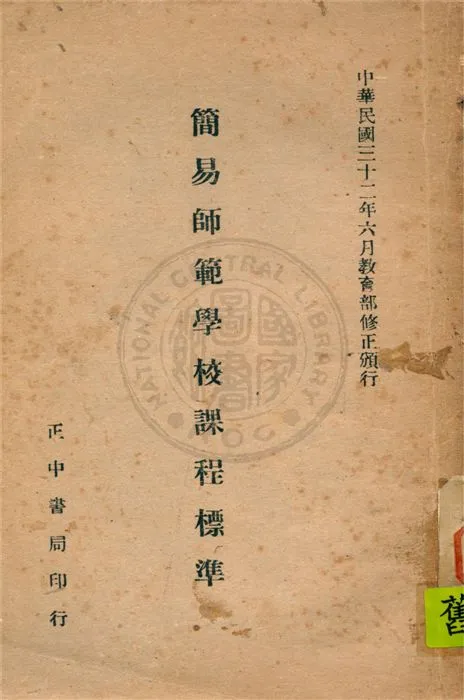 中華民國三十二年六月教育部修正頒行
簡易師範學校課程標準
正中書局印行
NATIONAL CENTRAL LIBRARY
舊